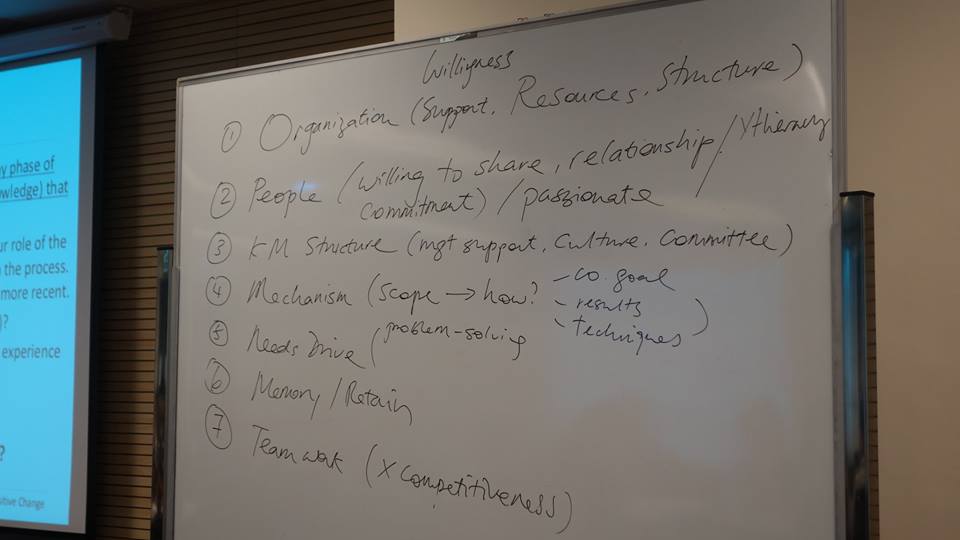 y phase of
wledge) that
ur role of the
the process.
more recent.
)?
experience
?
sitive Change
Williyness
① Organization (Support, Resources, Structure)
② People (willing to share, relationship /
commitment) / passionate
③ KM Structure (mgt support, Culture, Committee)
④ Mechanism (scope → how? - co goal
- results
- techniques)
⑤ Needs Drive (problem-solving
⑥ Memory / Retain
⑦ Teamwork (x competitiveness)